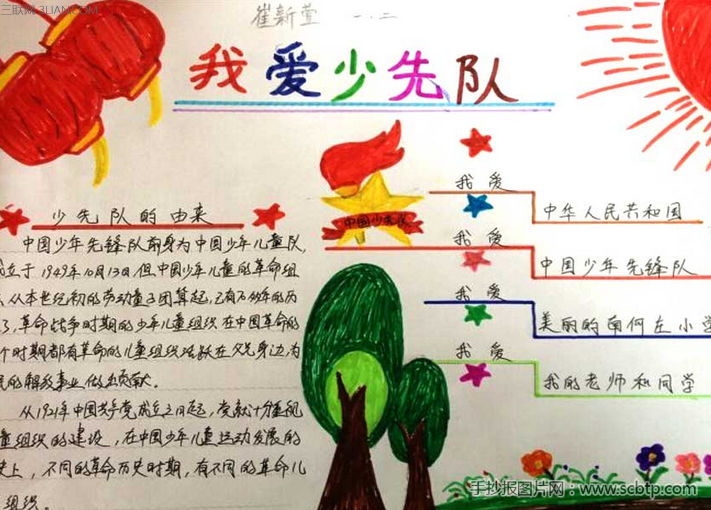 三联网 3LIAN.COM
崔新萱 一.二
我爱少先队
我爱
中国少先队
中华人民共和国
我爱
中国少年先锋队
我爱
美丽的南何庄小学
我爱
我的老师和同学
少先队的由来
中国少年先锋队前身为中国少年儿童队,
成立于1949年10月13日.但中国少年儿童的革命组
从本世纪初的劳动童子团算起,已有
了,革命战争时期的少年儿童组织在中国革命的
个时期都有革命的儿童组织活跃在父兄身边,为
民的解放事业做出贡献。
从1921年中国共产党成立之日起,党就十分重视
童组织的建设,在中国少年儿童运动发展的
史上,不同的革命历史时期,有不同的革命儿
组织。
手抄报图片网:www.scbtp.com